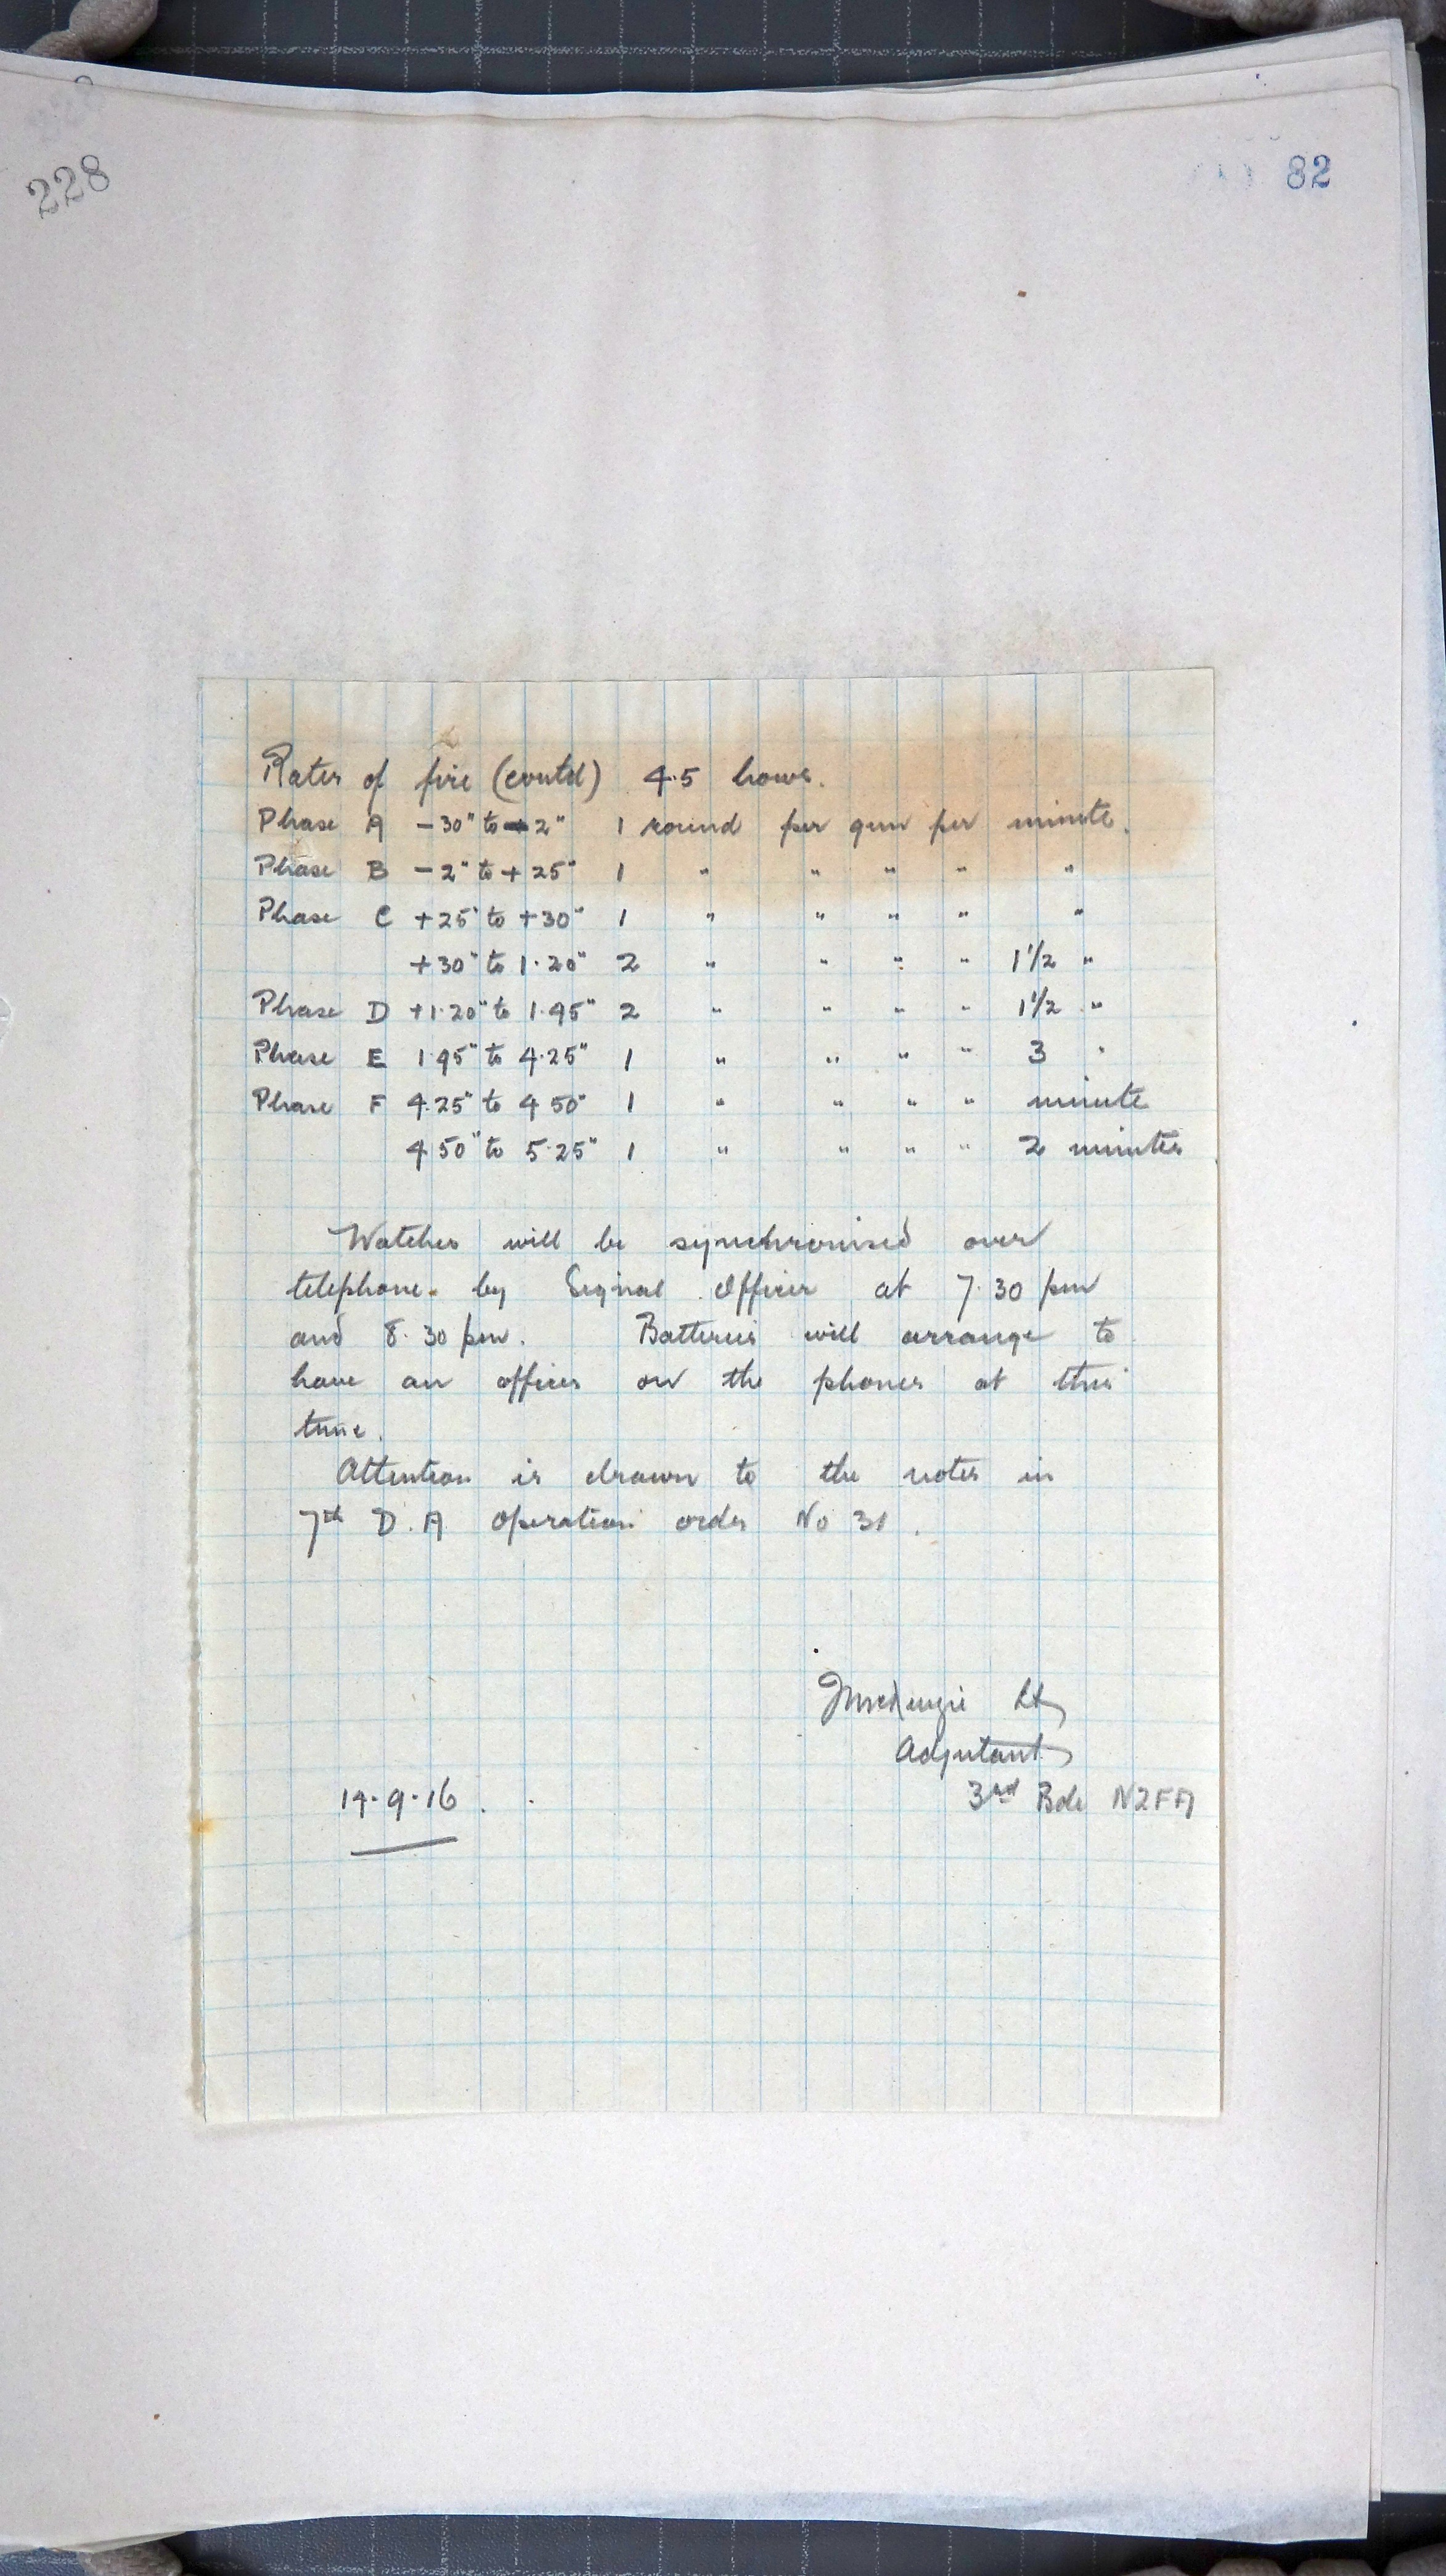 228
82
Rates of fire (contd) 4.5 hows.
Phase A -30" to -2" 1 round per gun per minute.
Phase B -2" to +25" 1 " " " " "
Phase C +25" to +30" 1 " " " " "
+30" to 1.20" 2 " " " " 1½ "
Phase D +1.20" to 1.45" 2 " " " " 1½ "
Phase E 1.45" to 4.25" 1 " " " " 3 "
Phase F 4.25" to 4 50" 1 " " " " minute
4 50" to 5.25" 1 " " " " 2 minutes
Watches will be synchronised over
telephone. by Signal Officer at 7.30 pm
and 8.30 pm. Batteries will arrange to
have an officer on the phones at this
time.
Attention is drawn to the notes in
7th D.A operation order No 31.
McKenzie Lt
Adjutant
3rd Bde NZFA
14.9.16.